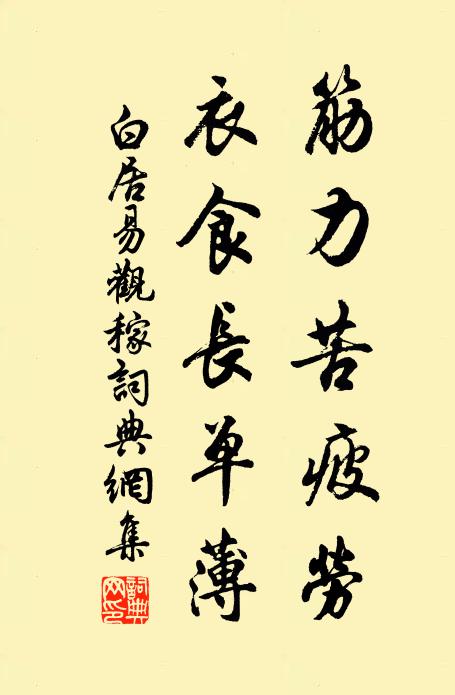 筋力苦疲勞
衣食長單薄
白居易觀稼詞典網集
詞典網印